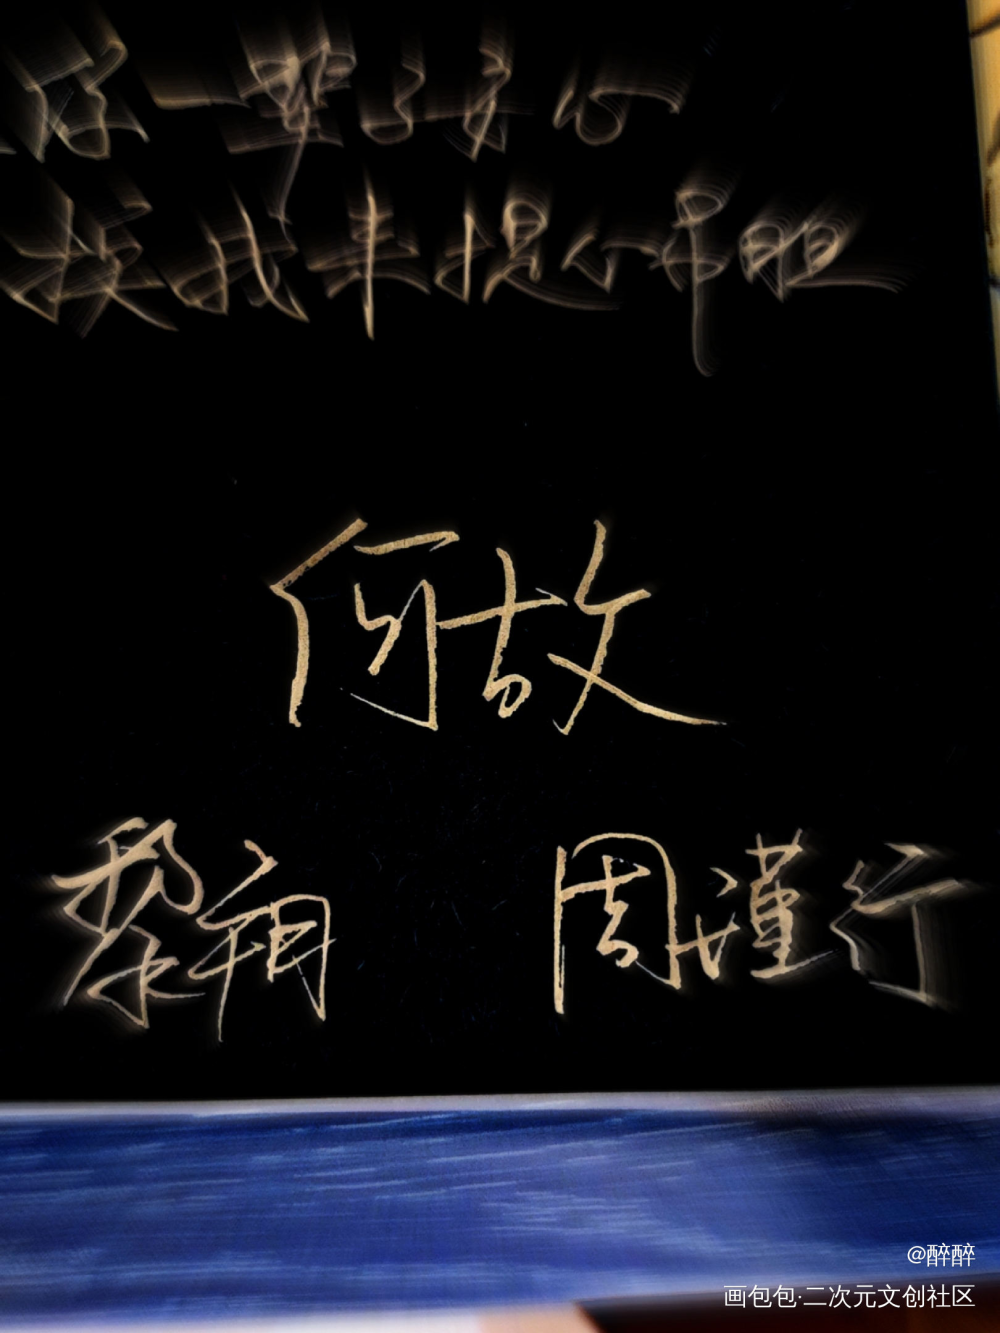 你一辈子安心
换我半提心吊胆
何故
黎朔 周瑾行
@醉醉
画包包·二次元文创社区